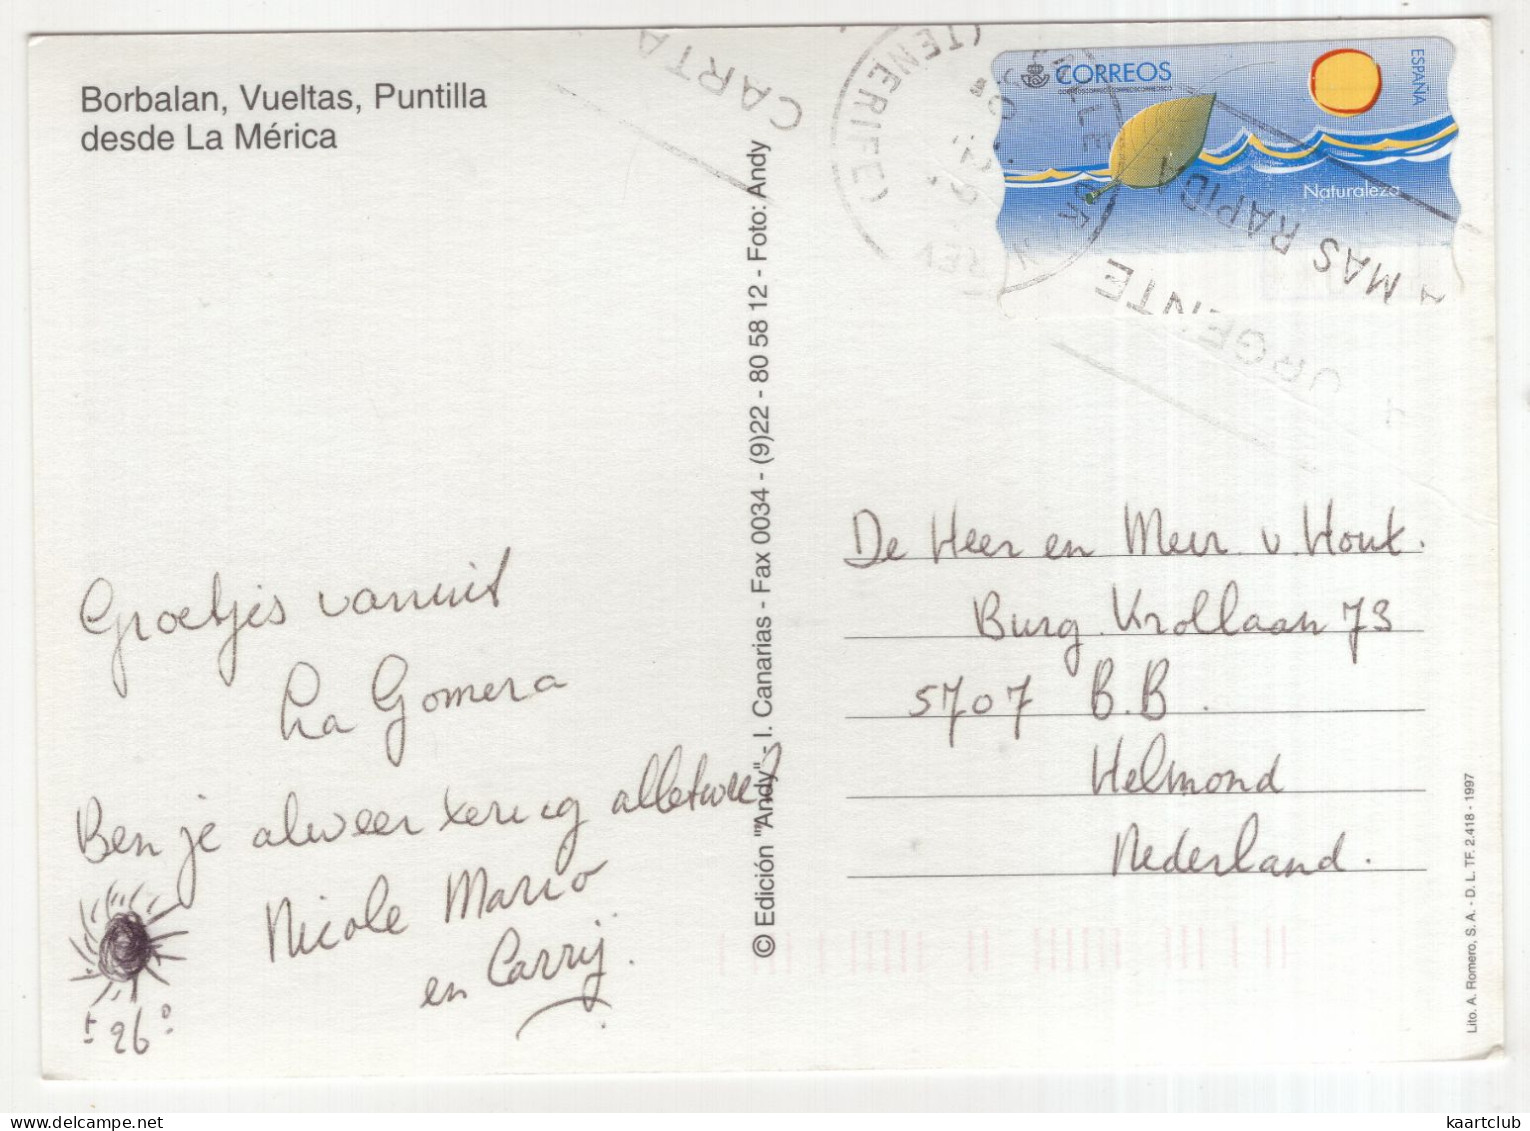 Borbalan, Vueltas, Puntilla
desde La Mérica
CARTA
URGENTE
MAS RAPIDA
(TENERIFE)
CORREOS
ESPAÑA
Naturaleza
Groetjes vanuit
La Gomera
Ben je alweer
alletwee?
Nicole Mario
en Carrij.
± 26°
© Edición "'Andy" - I. Canarias - Fax 0034 - (9)22 - 80 58 12 - Foto: Andy
De Heer en Mevr v. Hout.
Burg. Krollaan 73
5707 B.B.
Helmond
Nederland.
Lito. A. Romero, S. A. - D. L. TF. 2.418 - 1997
kaartclub